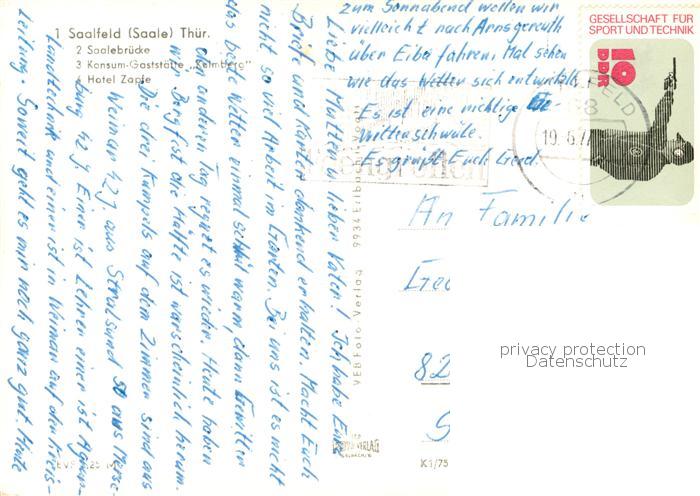 1 Saalfeld (Saale) Thür.
2 Saalebrücke
3 Konsum-Gaststätte „Kelmberg"
4 Hotel Zapfe
Liebe Mutter u. lieber Vater! Ich habe Eure
Briefe und Karten dankend erhalten. Macht Euch
nicht so viel Arbeit im Garten. Bei uns ist es nicht
das beste Wetter einmal schwül warm, dann Gewitter
am anderen Tag regnet es wieder. Heute haben
wir Bergfest die Hälfte ist warscheinlich herum.
Die drei Kumpels auf dem Zimmer sind aus
Weimar 42 J. aus Stralsund 50 aus Merse-
burg 42 J. Einer ist Lehrer einer ist Agrar-
Landtechnik und einer ist in Weimar auf der Kreis-
leitung. Soweit geht es mir noch ganz gut. Heute
zum Sonnabend wollen wir
vielleicht nach Arnsgereuth
über Eiba fahren. Mal sehen
wie das Wetter sich entwickelt.
Es ist eine richtige Ge-
witterschwüle.
Es grüßt Euch Gerd.
An Familie
82
S
GESELLSCHAFT FÜR
SPORT UND TECHNIK
10
DDR
68
19.6.7
VEB Foto-Verlag 9934 Erlbach
K1/75
privacy protection
Datenschutz